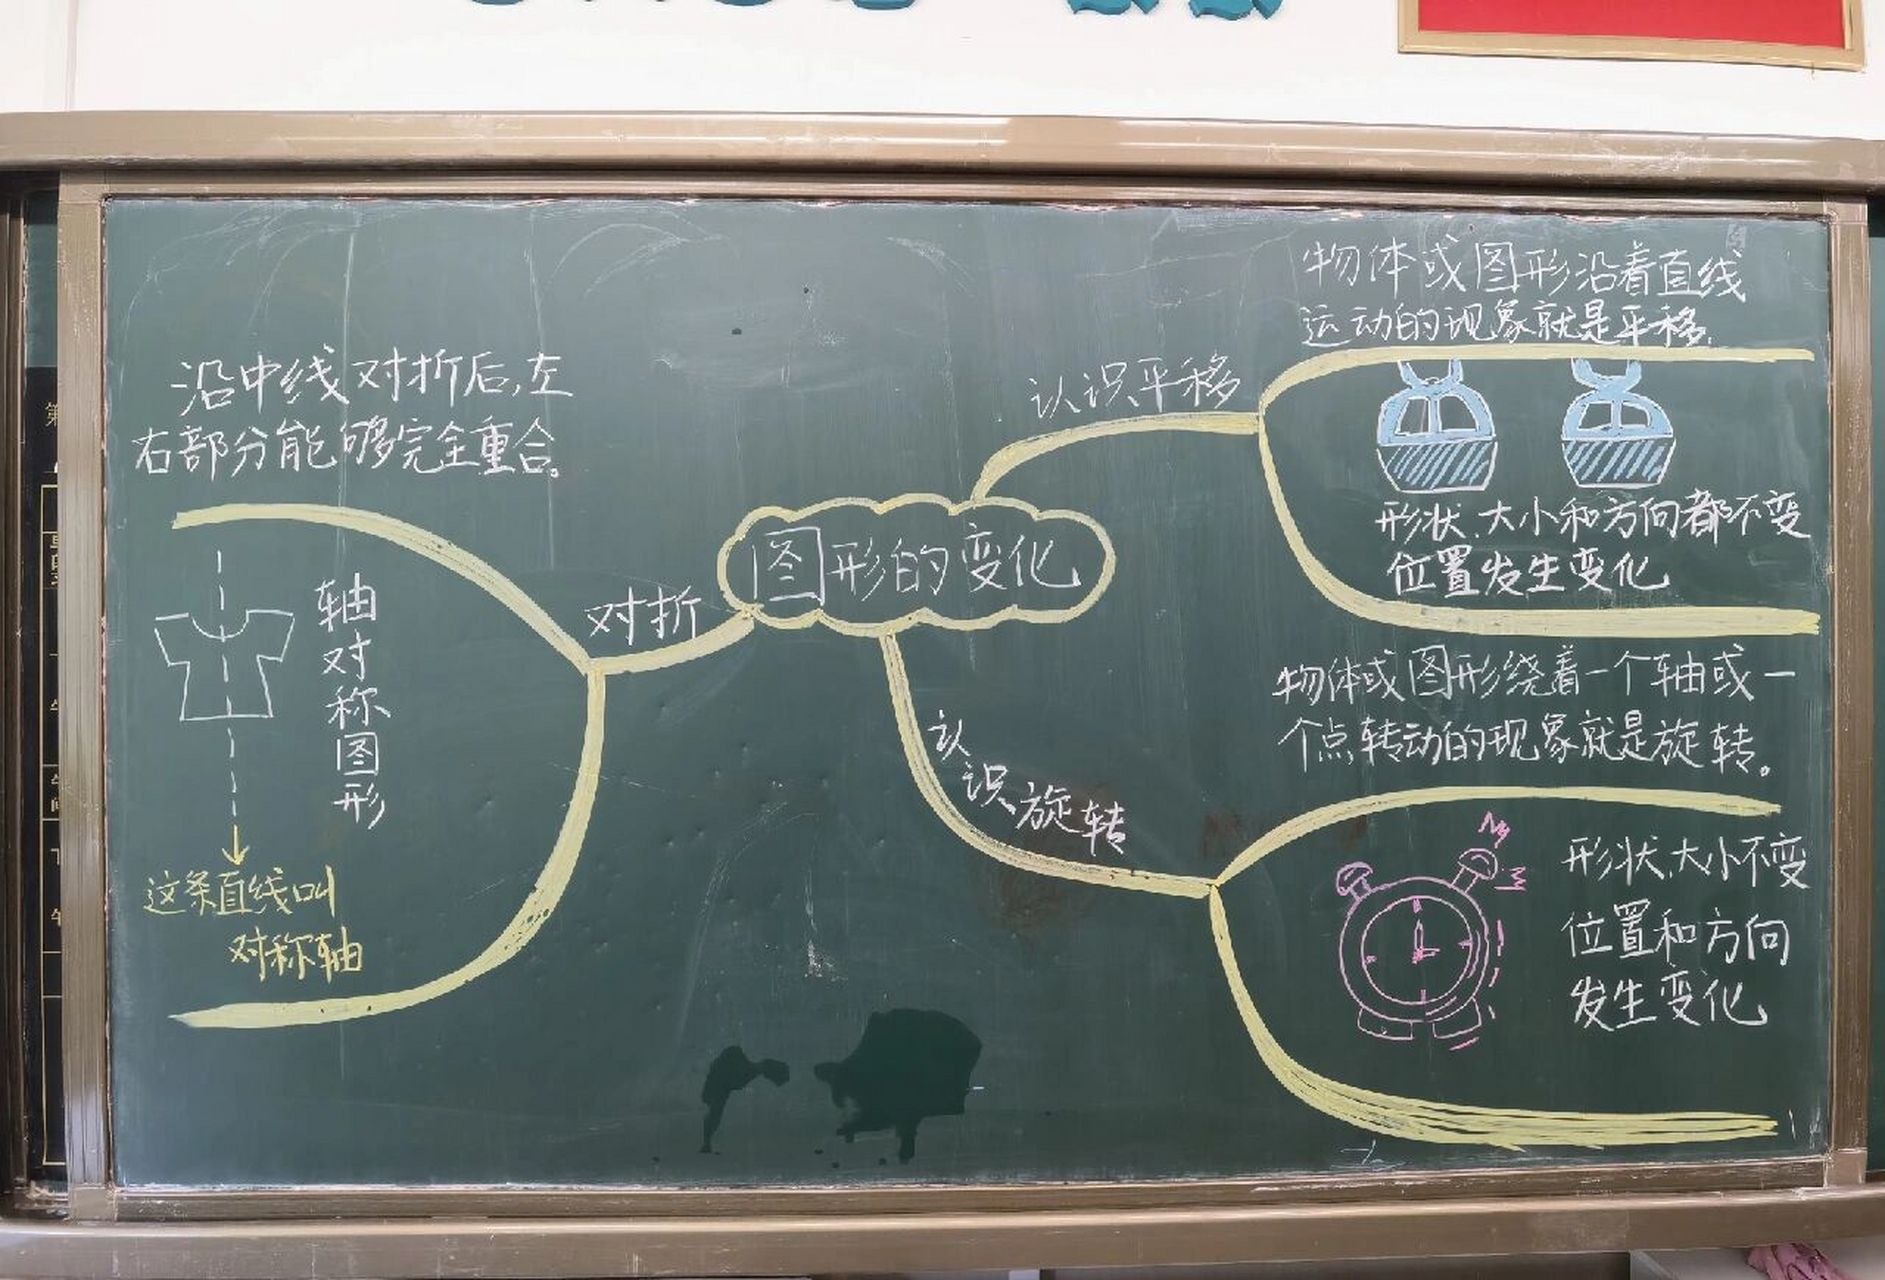 沿中线对折后,左
右部分能够完全重合。
轴对称图形
这条直线叫
对称轴
对折
图形的变化
认识平移
物体或图形沿着直线
运动的现象就是平移.
形状、大小和方向都不变
位置发生变化
认识旋转
物体或图形绕着一个轴或一
个点转动的现象就是旋转。
形状、大小不变
位置和方向
发生变化